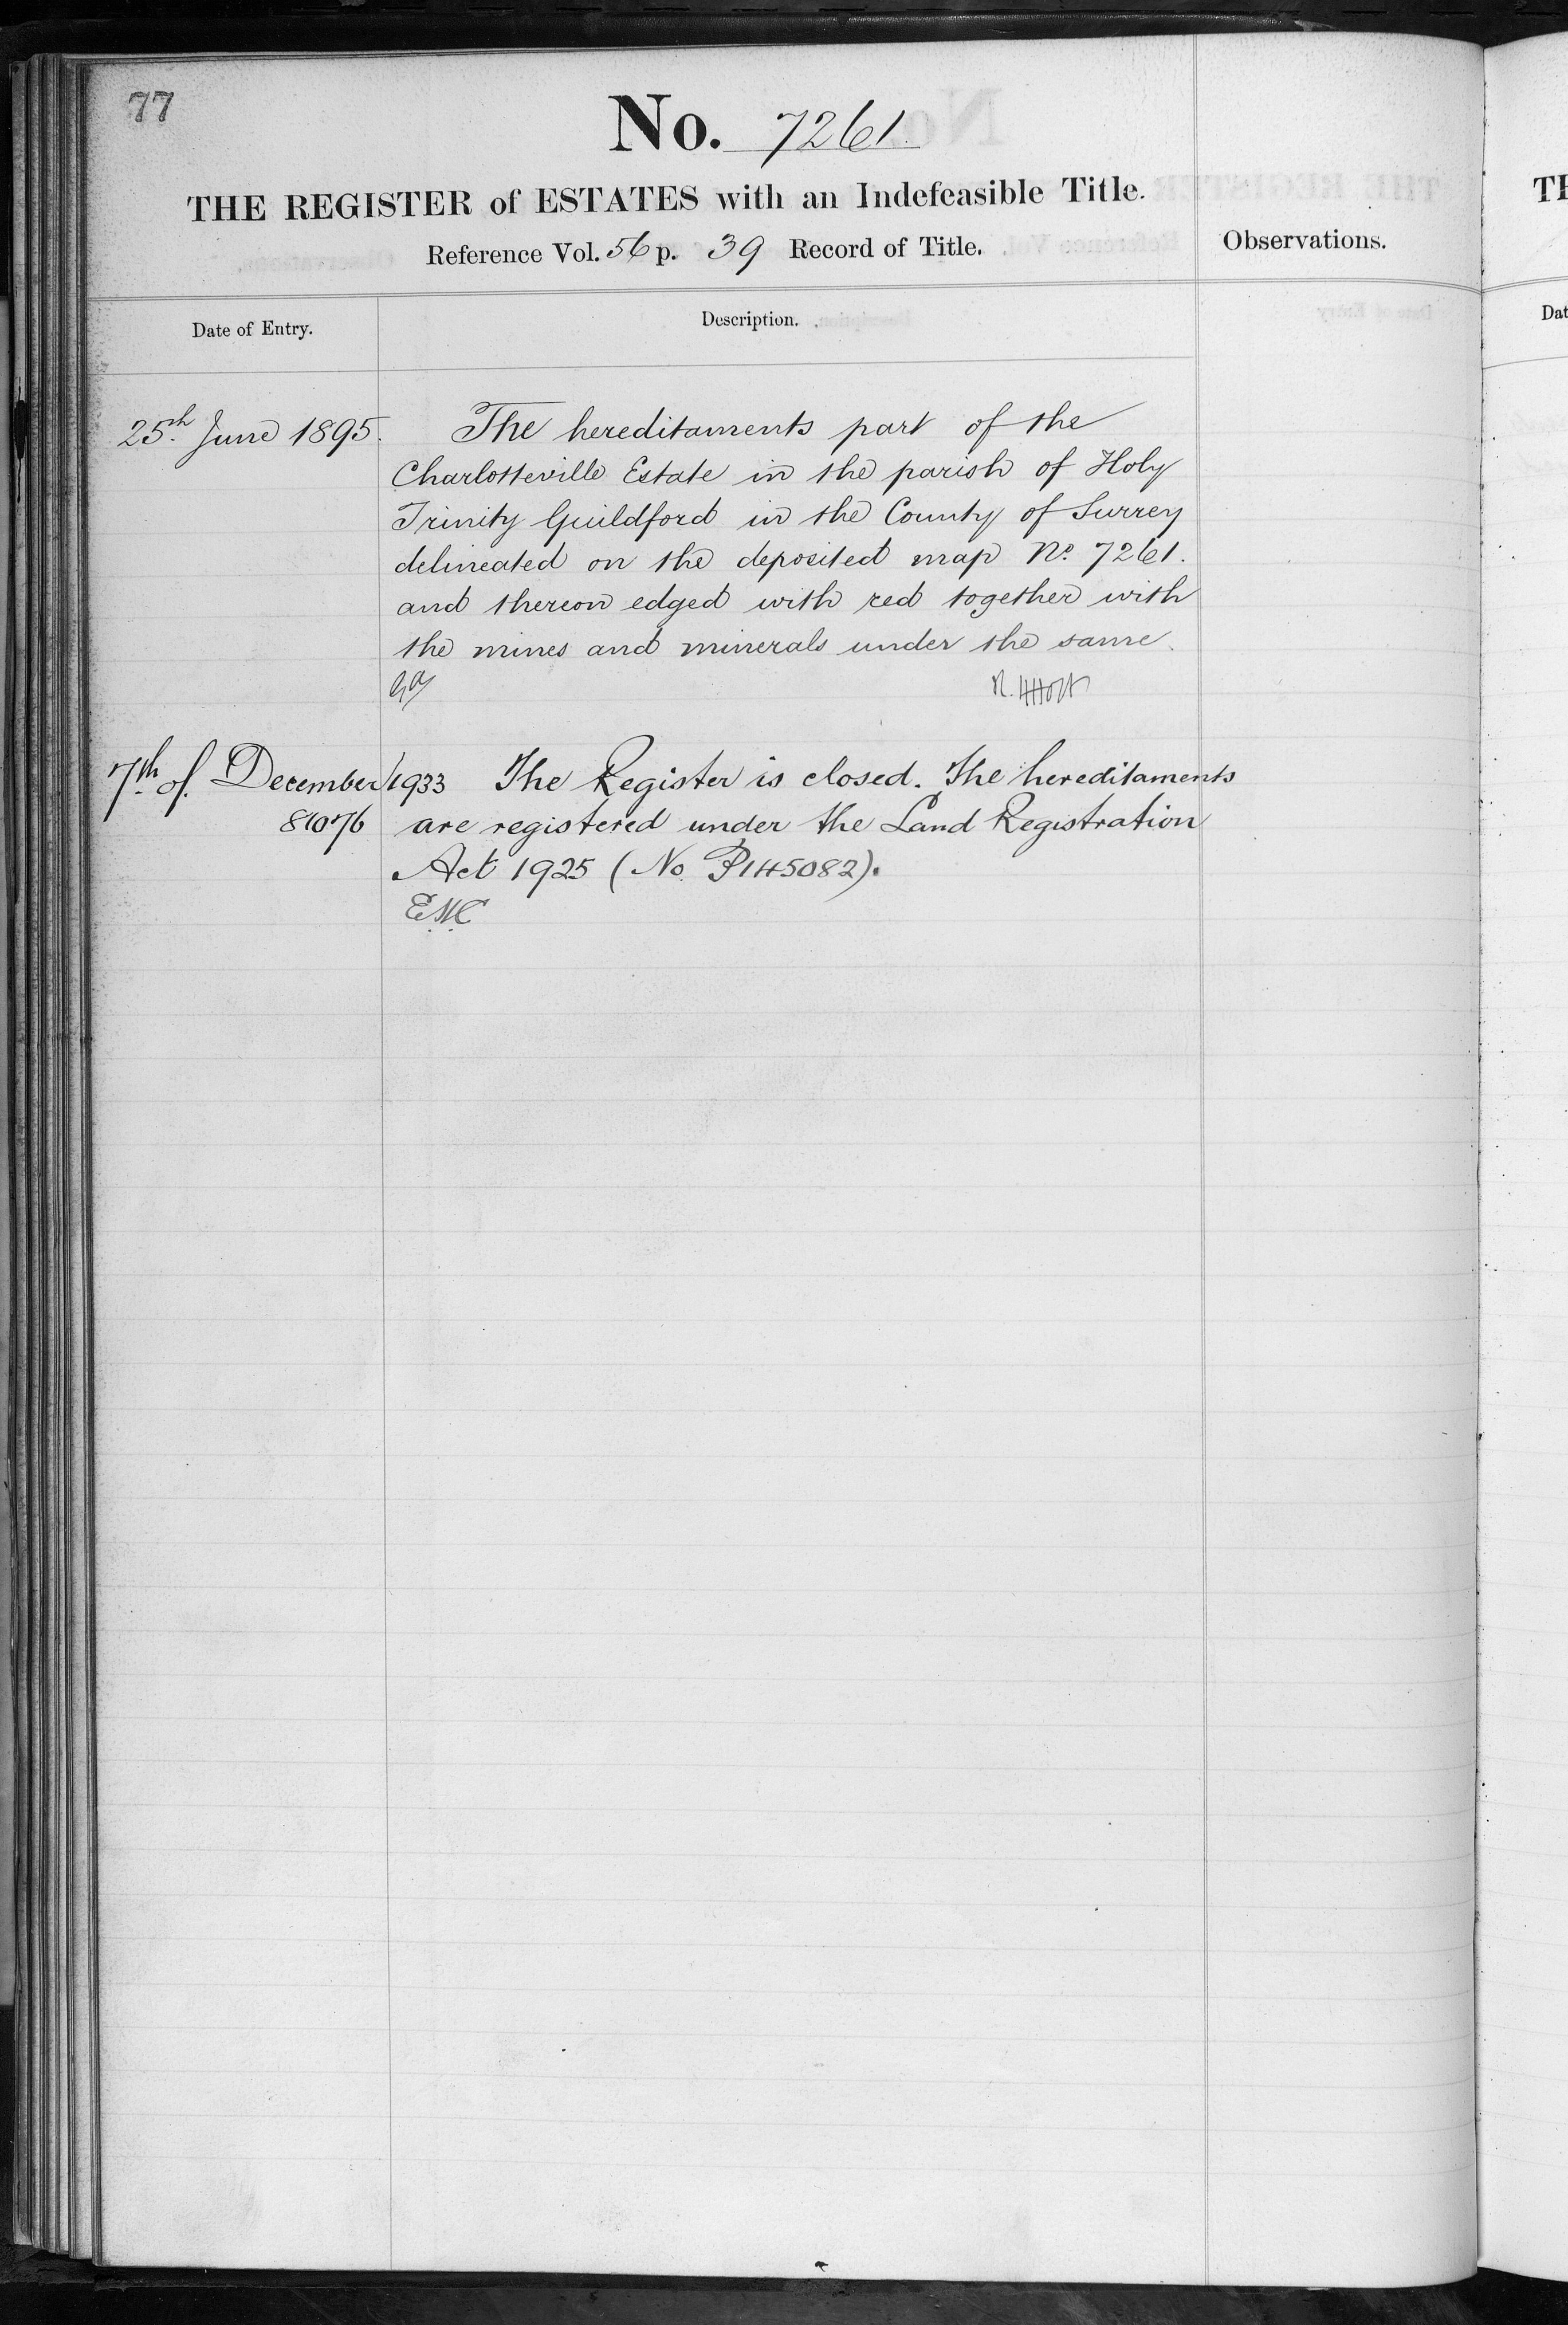 77
No. 7261.
THE REGISTER of ESTATES with an Indefeasible Title.
Reference Vol. 56 p. 39 Record of Title.
Observations.
Date of Entry.
Description.
25th June 1895.
The hereditaments part of the
Charlotteville Estate in the parish of Holy
Trinity Guildford in the County of Surrey
delineated on the deposited map No. 7261.
and thereon edged with red together with
the mines and minerals under the same.
7th of December 1933 The Register is closed. The hereditaments
81076 are registered under the Land Registration
Act 1925 (No. P145082).
Dat